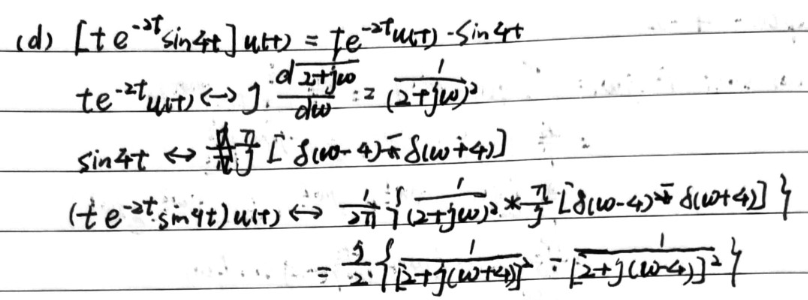 (d) [te^{-2t}sin4t]u(t) = te^{-2t}u(t)·sin4t
te^{-2t}u(t) ↔ j·\frac{d\frac{1}{2+jω}}{dω} = \frac{1}{(2+jω)^2}
sin4t ↔ \frac{π}{j}[δ(ω-4)-δ(ω+4)]
(te^{-2t}sin4t)u(t) ↔ \frac{1}{2π}{\frac{1}{(2+jω)^2} * \frac{π}{j}[δ(ω-4)-δ(ω+4)]}
= \frac{j}{2}{\frac{1}{[2+j(ω+4)]^2} - \frac{1}{[2+j(ω-4)]^2}}